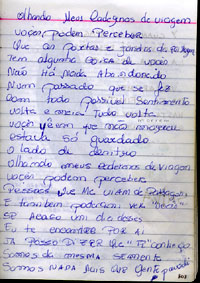 Olhando Meus Cadernos de viagem
voçês podem Perceber
Que as portas e janelas da
tem alguma coisa de vocês
Não Há Nada Abandonado
Num passado que se fez
Com todo possivel Sentimento
volta e meia Tudo volta
voçê vêem que não morreu
estava Só guardado
o lado de dentro
Olhando meus cadernos de viagem
voçês podem perceber
Pessoas que Me viam de Passagem
E também poderem ver
SE Acaso um dia desses
Eu te encontrar POR AI
JÁ POSSO DIZER QUE TE conheço
Somos da mesma SEMENTE
Somos NADA mais que Gente